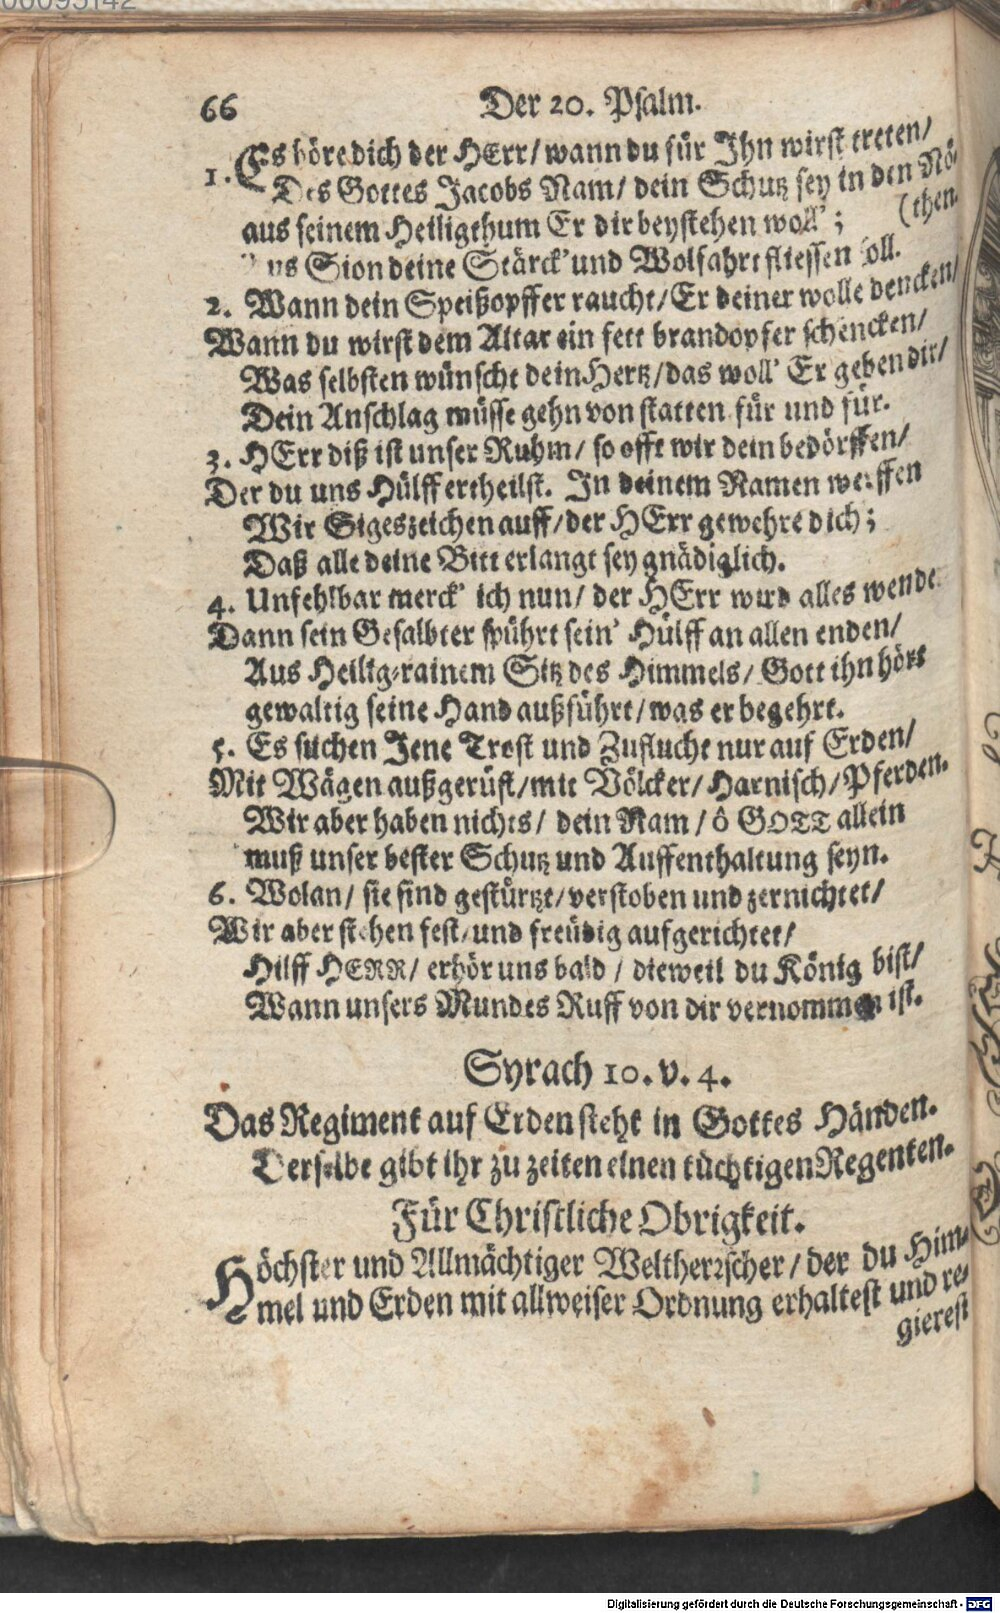 00095142
66 Der 20. Psalm.
1. Es höre dich der HErr/ wann du für Ihn wirst treten/
Des Gottes Jacobs Nam/ dein Schutz sey in den Nö-
(then.
aus seinem Heiligthum Er dir beystehen woll';
Aus Sion deine Stärck' und Wolfahrt fliessen soll.
2. Wann dein Speißopffer raucht/ Er deiner wolle dencken/
Wann du wirst dem Altar ein fett brandopfer schencken/
Was selbsten wünscht dein Hertz/ das woll' Er geben dir/
Dein Anschlag müsse gehn von statten für und für.
3. HErr diß ist unser Ruhm/ so offt wir dein bedörffen/
Der du uns Hülff ertheilst. In deinem Namen werffen
Wir Sigeszeichen auff/ der HErr gewehre dich;
Daß alle deine Bitt erlangt sey gnädiglich.
4. Unfehlbar merck' ich nun/ der HErr wird alles wende
Dann sein Gesalbter spührt sein' Hülff an allen enden/
Aus Heilig-rainem Sitz des Himmels/ Gott ihn hört
gewaltig seine Hand außführt/ was er begehrt.
5. Es suchen Jene Trost und Zuflucht nur auf Erden/
Mit Wägen außgerüst/ mit Völcker/ Harnisch/ Pferden.
Wir aber haben nichts/ dein Nam/ ô GOTT allein
muß unser bester Schutz und Auffenthaltung seyn.
6. Wolan/ sie sind gestürtzt/ verstoben und zernichtet/
Wir aber stehen fest/ und freüdig aufgerichtet/
Hilff HERR/ erhör uns bald / dieweil du König bist/
Wann unsers Mundes Ruff von dir vernommen ist.
Syrach 10. v. 4.
Das Regiment auf Erden steht in Gottes Händen.
Derselbe gibt ihr zu zeiten einen tüchtigen Regenten.
Für Christliche Obrigkeit.
Höchster und Allmächtiger Weltherrscher/ der du Him-
mel und Erden mit allweiser Ordnung erhaltest und re-
gierest
Digitalisierung gefördert durch die Deutsche Forschungsgemeinschaft - DFG